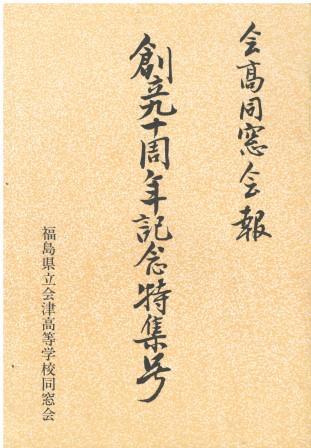 会高同窓会報
創立九十周年記念特集号
福島県立会津高等学校同窓会